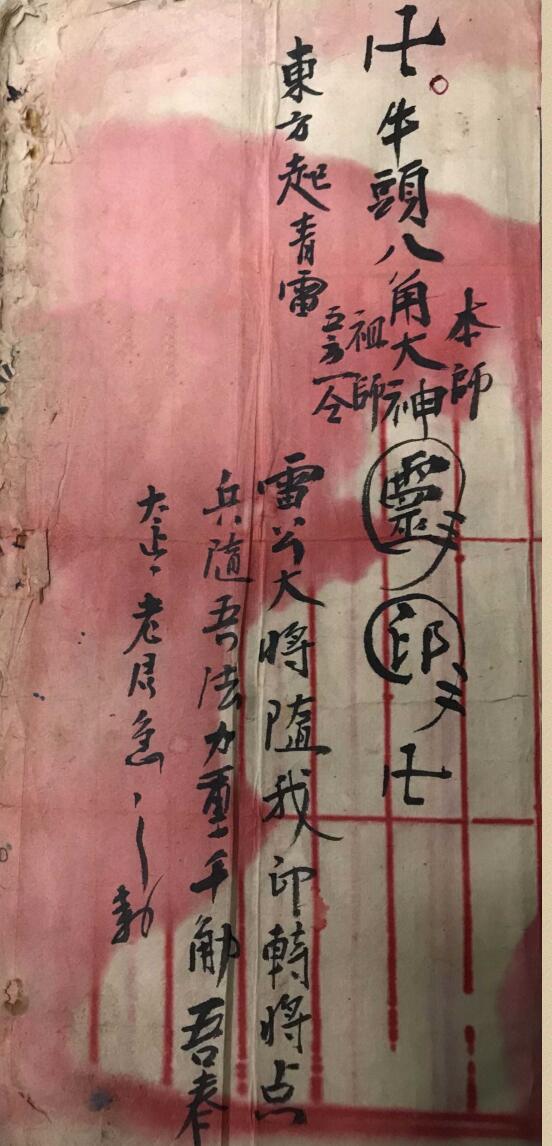 卐 牛頭八角大神 靈 印 卐
本師
祖師
五方一令
東方起青雷
雷公大將隨我印轉將点
兵隨吾法力重千觔 吾奉
太上老君急〻敕